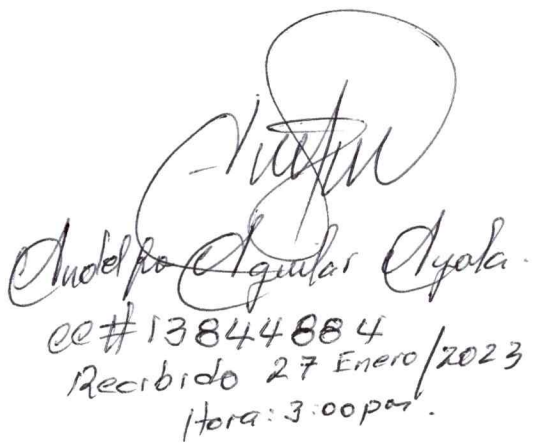 Andolfo Aguilar Ayala.
cc # 13844884
Recibido 27 Enero/2023
Hora: 3:00pm.